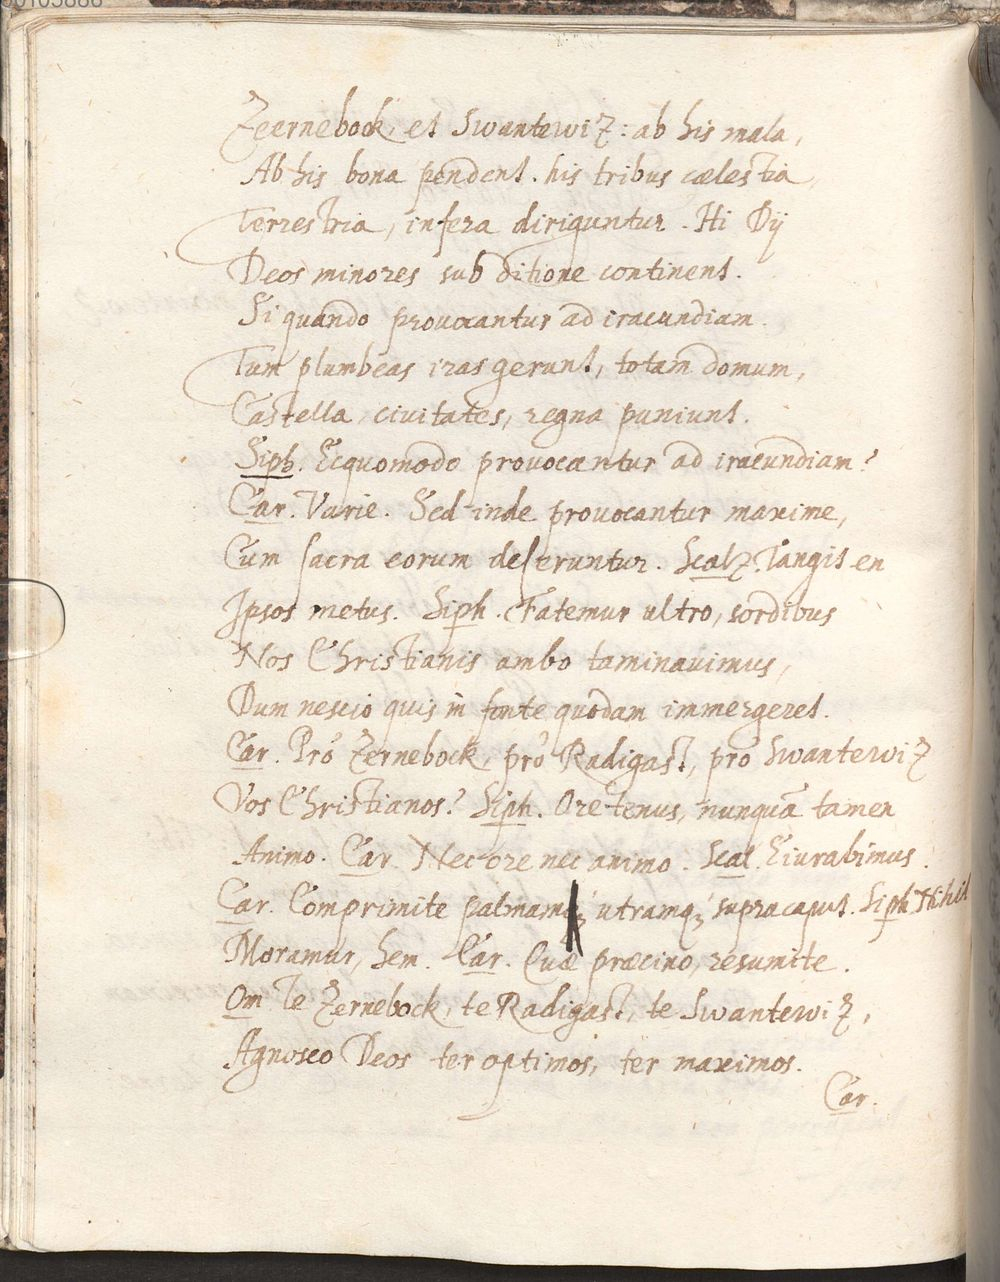 Zeernebock, et Swantewiz: ab his mala,
Ab his bona pendent. his tribus cælestia,
Terrestria, infera diriguntur. Hi Dij
Deos minores sub ditione continent.
Si quando provocantur ad iracundiam.
Tum plumbeas iras gerunt, totam domum,
Castella, civitates, regna puniunt.
Siph. Ecquomodo provocantur ad iracundiam?
Car. Varie. Sed inde provocantur maxime,
Cum sacra eorum deseruntur. Scalz. Tangit en
Ipsos metus. Siph. Fatemur ultro, sordibus
Nos Christianis ambo taminavimus,
Dum nescio quis in fonte quodam immergeret.
Car. Pro Zernebock, pro Radigast, pro Swantewiz
Vos Christianos? Siph. Ore tenus, nunquā tamen
Animo. Car. Nec ore nec animo. Scal. Eiurabimus.
Car. Comprimite palmam utramq; supra caput. Siph. Nihil
Moramur, hem. Car. Quæ præcino, resumite.
Om. Te Zernebock, te Radigast, te Swantewiz,
Agnosco Deos ter optimos, ter maximos.
Car.